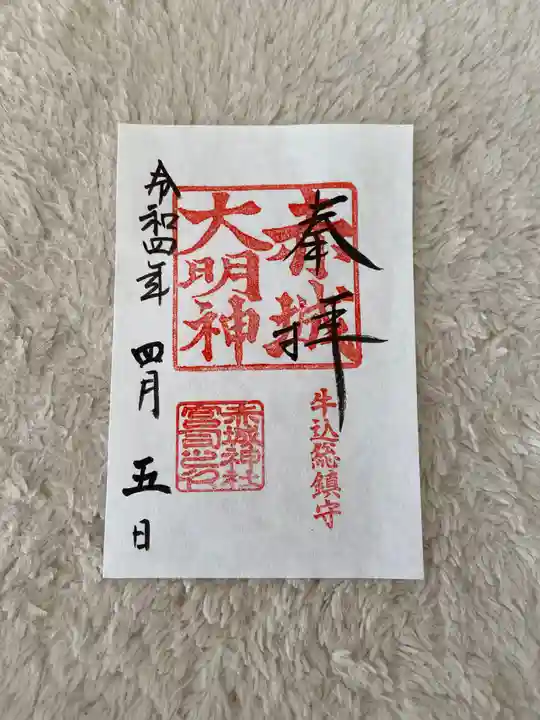 奉拝
赤城
大明神
牛込総鎮守
赤城神社
宮司之印
令和四年
四月
五日